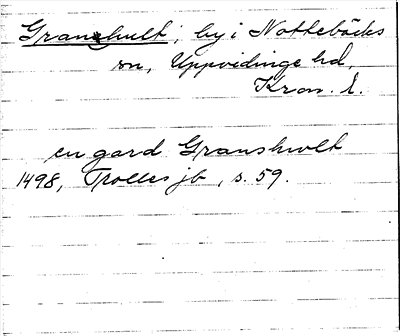 Granhult, by i Nottebäcks
sn, Uppvidinge hd,
Kron. l.
en gard Granshwlt
1498, Trolles jb, s. 59.